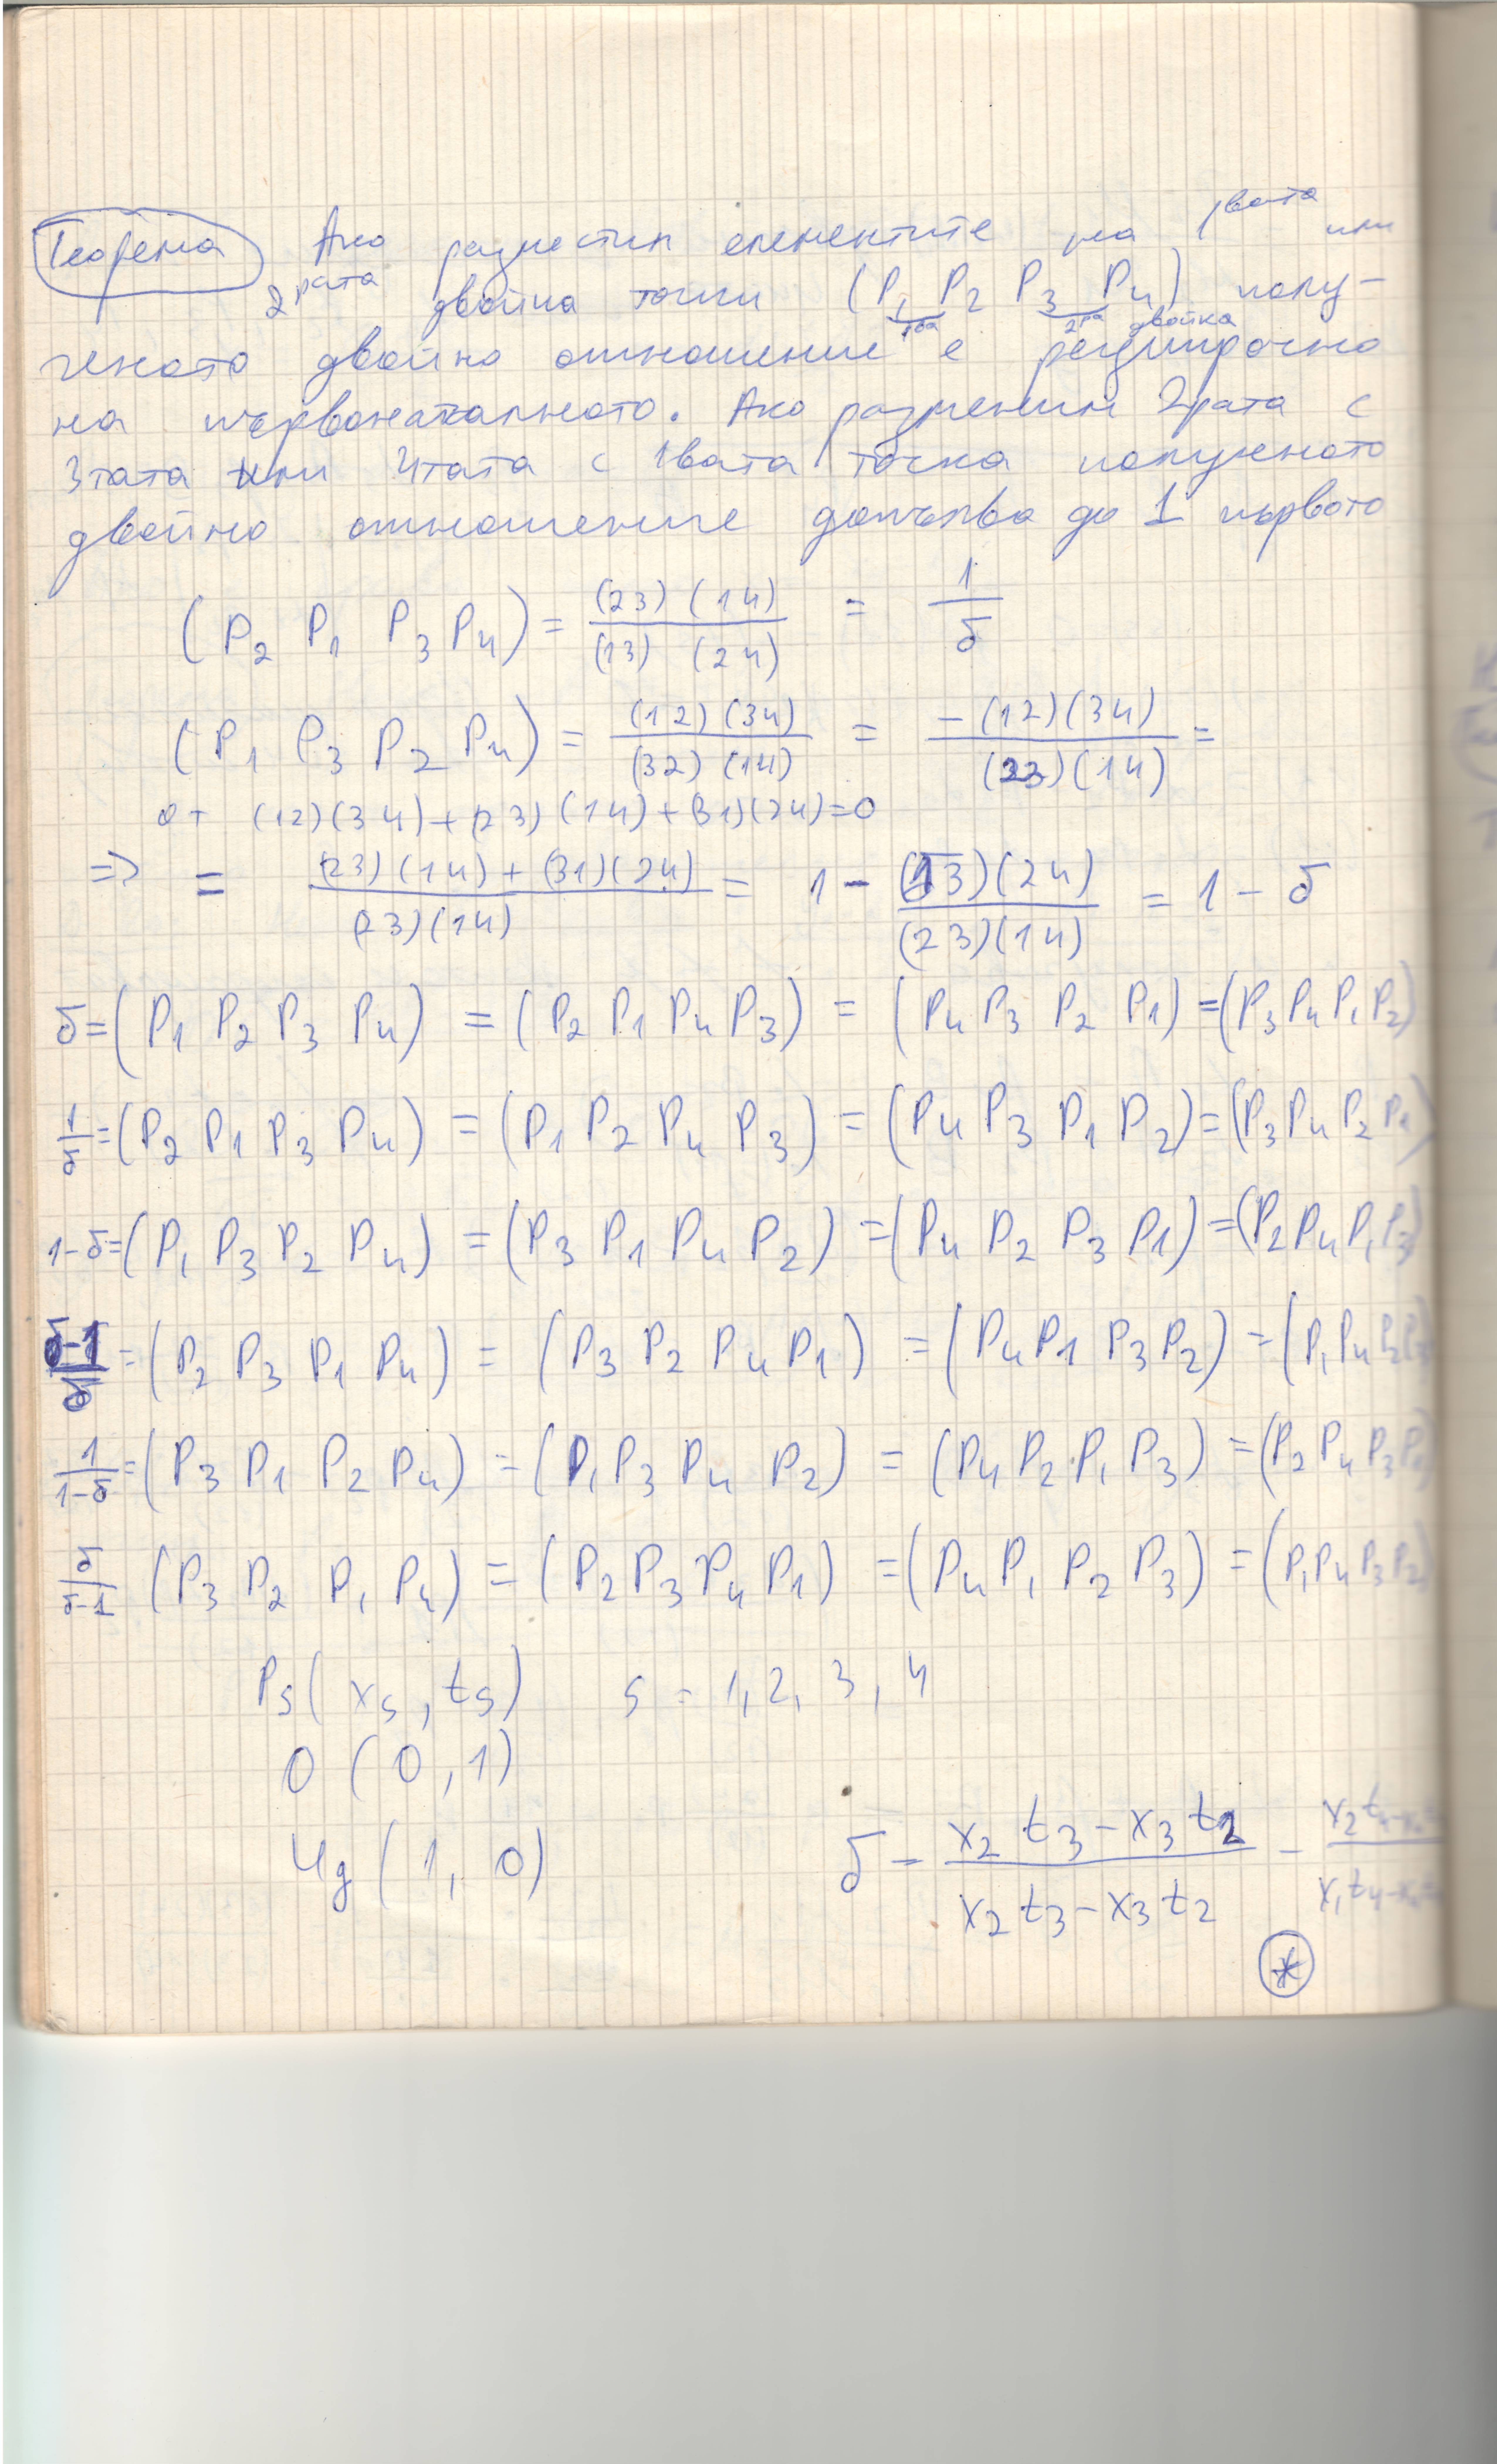 Теорема Ако разместим елементите на 1вата или
2рата двойка точки (P₁ P₂ P₃ P₄) полу-
1ва 2ра двойка
ченото двойно отношение е реципрочно
на първоначалното. Ако разменим 2рата с
3тата или 4тата с 1вата точка полученото
двойно отношение допълва до 1 първото
(P₂ P₁ P₃ P₄) = (23)(14) / (13)(24) = 1/δ
(P₁ P₃ P₂ P₄) = (12)(34) / (32)(14) = -(12)(34) / (23)(14) =
от (12)(34)+(23)(14)+(31)(24)=0
=> = (23)(14)+(31)(24) / (23)(14) = 1 - (13)(24) / (23)(14) = 1 - δ
δ=(P₁ P₂ P₃ P₄) = (P₂ P₁ P₄ P₃) = (P₄ P₃ P₂ P₁) =(P₃ P₄ P₁ P₂)
1/δ=(P₂ P₁ P₃ P₄) = (P₁ P₂ P₄ P₃) = (P₄ P₃ P₁ P₂)=(P₃ P₄ P₂ P₁)
1-δ=(P₁ P₃ P₂ P₄) =(P₃ P₁ P₄ P₂) =(P₄ P₂ P₃ P₁) =(P₂ P₄ P₁ P₃)
δ-1/δ =(P₂ P₃ P₁ P₄) = (P₃ P₂ P₄ P₁) =(P₄ P₁ P₃ P₂) =(P₁ P₄ P₂ P₃)
1/1-δ=(P₃ P₁ P₂ P₄) =(P₁ P₃ P₄ P₂) = (P₄ P₂ P₁ P₃) =(P₂ P₄ P₃ P₁)
δ/δ-1 (P₃ P₂ P₁ P₄) = (P₂ P₃ P₄ P₁) =(P₄ P₁ P₂ P₃) =(P₁ P₄ P₃ P₂)
Ps(xs, ts) s = 1, 2, 3, 4
O (0, 1)
Ug (1, 0)
δ = x₂ t₃ - x₃ t₂ / x₂ t₃ - x₃ t₂ -
*